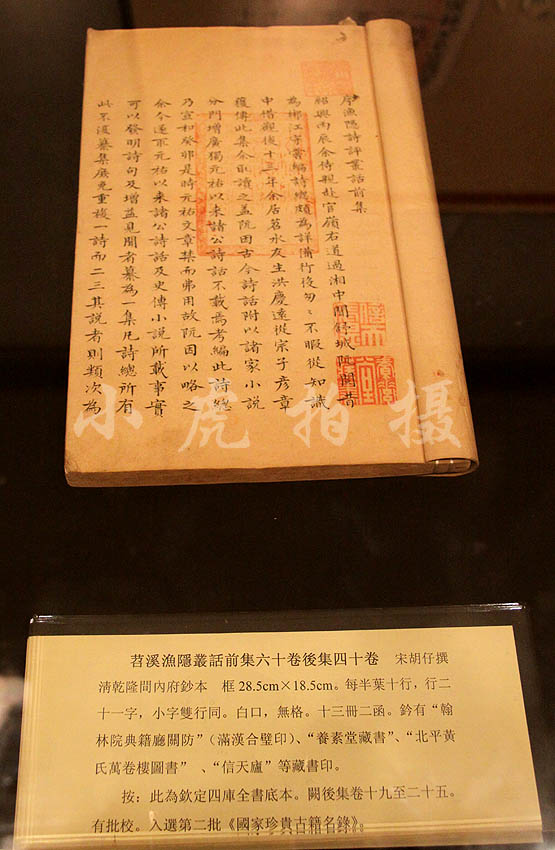 序漁隱詩評叢話前集
紹興丙辰余侍親赴官嶺右道過湘中聞舒城阮閱昔
為郴江守嘗編詩總頗為詳備行役匆匆不暇從知識
中借觀後十三年余居苕水友生洪慶遠從宗子彥章
獲傳此集余取讀之蓋阮因古今詩話附以諸家小說
分門增廣獨元祐以來諸公詩話不載焉考編此詩總
乃宣和癸卯是時元祐文章禁而弗用故阮因以略之
余今遂取元祐以來諸公詩話及史傳小說所載事實
可以發明詩句及增益見聞者纂為一集凡詩總所有
此不復纂集庶免重複一詩而二三其說者則類次為
小虎拍摄
苕溪漁隱叢話前集六十卷後集四十卷 宋胡仔撰
清乾隆間內府鈔本 框28.5cm×18.5cm。每半葉十行，行二
十一字，小字雙行同。白口，無格。十三冊二函。鈐有“翰
林院典籍廳關防”（滿漢合璧印）、“養素堂藏書”、“北平黃
氏萬卷樓圖書” 、“信天廬”等藏書印。
按：此為欽定四庫全書底本。闕後集卷十九至二十五。
有批校。入選第二批《國家珍貴古籍名錄》。